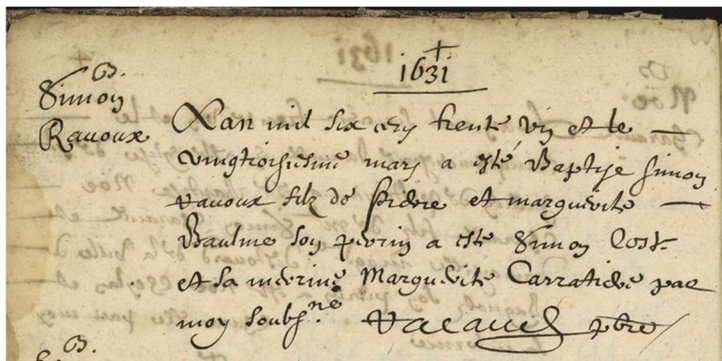 1631
B.
Simon
Ravoux
L'an mil six cens trente un et le
vingtroisiesme mars a esté Baptisé simon
ravoux filz de et marguerite
Baulme son perrin a este Simon Cost
et sa merrine Marguerite Carratiere par
moy soubs.né ptre
B.